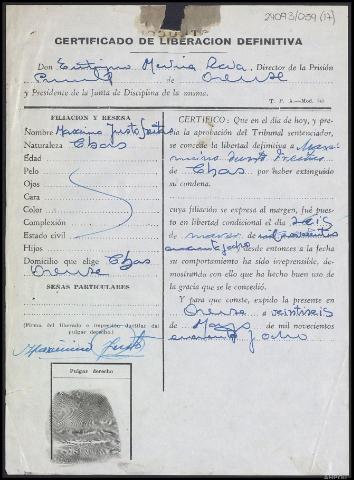 29093/039 (17)
CERTIFICADO DE LIBERACION DEFINITIVA
Don Eutiquio Medina, Director de la Prisión
de Orense
y Presidente de la Junta de Disciplina de la misma.
T. P. A.—Mod.
FILIACION Y RESEÑA
Nombre Maximino Justo
Naturaleza Chas
Edad
Pelo
Ojos
Cara
Color
Complexión
Estado civil
Hijos
Domicilio que elige Chas
Orense
SEÑAS PARTICULARES
(Firma del liberado o impresión dactilar del
pulgar derecho)
Maximino Justo
Pulgar derecho
CERTIFICO: Que en el día de hoy, y pre-
via la aprobación del Tribunal sentenciador,
se concede la libertad definitiva a Maxi-
mino Justo
de Chas, por haber extinguido
su condena.
cuya filiación se expresa al margen, fué pues-
to en libertad condicional el día seis
de marzo de mil novecientos
cuarenta y ocho desde entonces a la fecha
su comportamiento ha sido irreprensible, de-
mostrando con ello que ha hecho buen uso de
la gracia que se le concedió.
Y para que conste, expido la presente en
Orense a veintiséis
de Mayo de mil novecientos
cuarenta y ocho